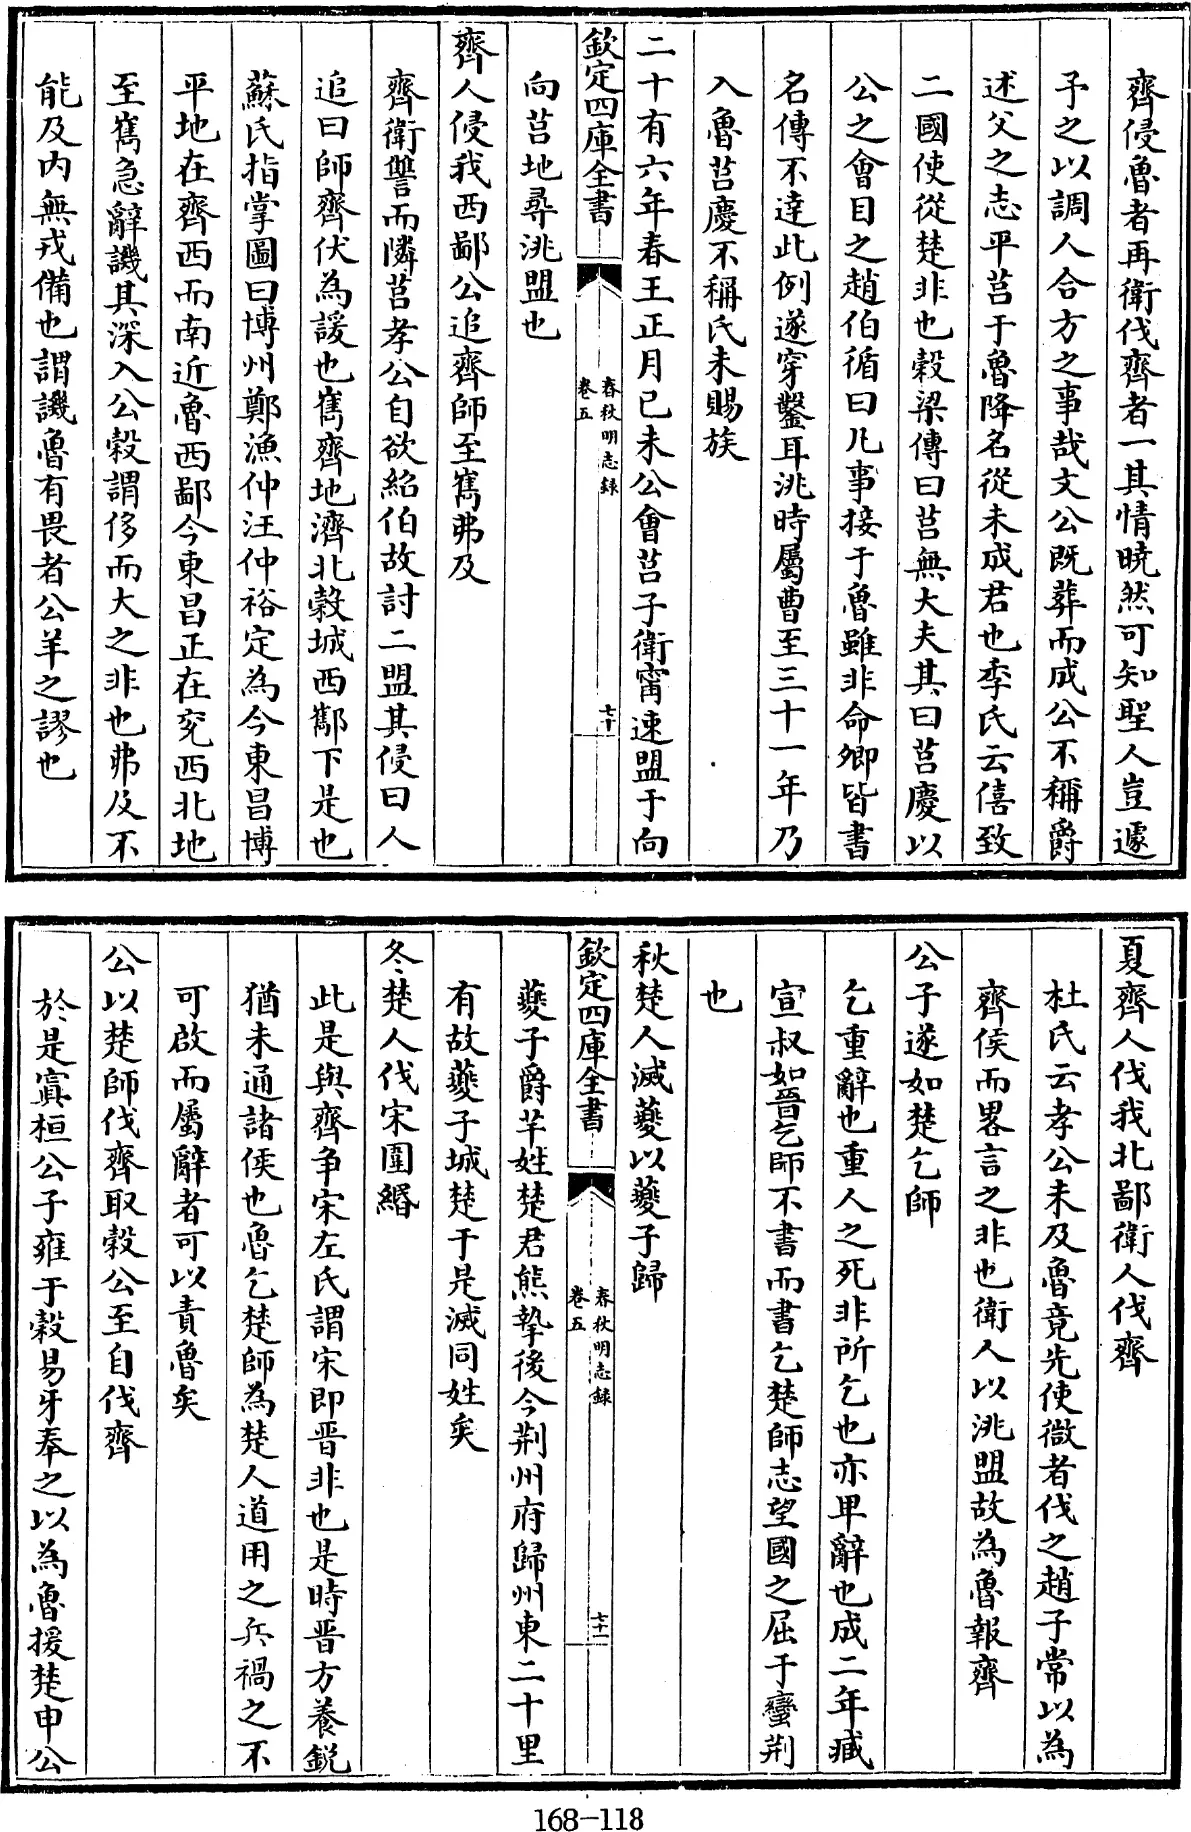 齊侵魯者再衛伐齊者一其情曉然可知聖人豈遽
予之以調人合方之事哉文公既葬而成公不稱爵
述父之志平莒于魯降名從未成君也季氏云僖致
二國使從楚非也穀梁傳曰莒無大夫其曰莒慶以
公之會目之趙伯循曰凡事接于魯雖非命卿皆書
名傳不達此例遂穿鑿耳洮時屬曹至三十一年乃
入魯莒慶不稱氏未賜族
二十有六年春王正月己未公會莒子衛甯速盟于向
欽定四庫全書
春秋明志録
卷五
七十
向莒地尋洮盟也
齊人侵我西鄙公追齊師至巂弗及
齊衛讐而隣莒孝公自欲紹伯故討二盟其侵曰人
追曰師齊伏為諼也巂齊地濟北穀城西酅下是也
蘇氏指掌圖曰博州鄭漁仲汪仲裕定為今東昌博
平地在齊西而南近魯西鄙今東昌正在兖西北地
至巂急辭譏其深入公穀謂侈而大之非也弗及不
能及内無戎備也謂譏魯有畏者公羊之謬也
夏齊人伐我北鄙衛人伐齊
杜氏云孝公未及魯竟先使微者伐之趙子常以為
齊侯而畧言之非也衛人以洮盟故為魯報齊
公子遂如楚乞師
乞重辭也重人之死非所乞也亦卑辭也成二年臧
宣叔如晉乞師不書而書乞楚師志望國之屈于蠻荆
也
秋楚人滅夔以夔子歸
欽定四庫全書
春秋明志録
卷五
七十一
夔子爵芊姓楚君熊摯後今荆州府歸州東二十里
有故夔子城楚于是滅同姓矣
冬楚人伐宋圍緡
此是與齊争宋左氏謂宋即晋非也是時晋方養鋭
猶未通諸侯也魯乞楚師為楚人道用之兵禍之不
可啟而屬辭者可以責魯矣
公以楚師伐齊取穀公至自伐齊
於是寘桓公子雍于穀易牙奉之以為魯援楚申公
168-118